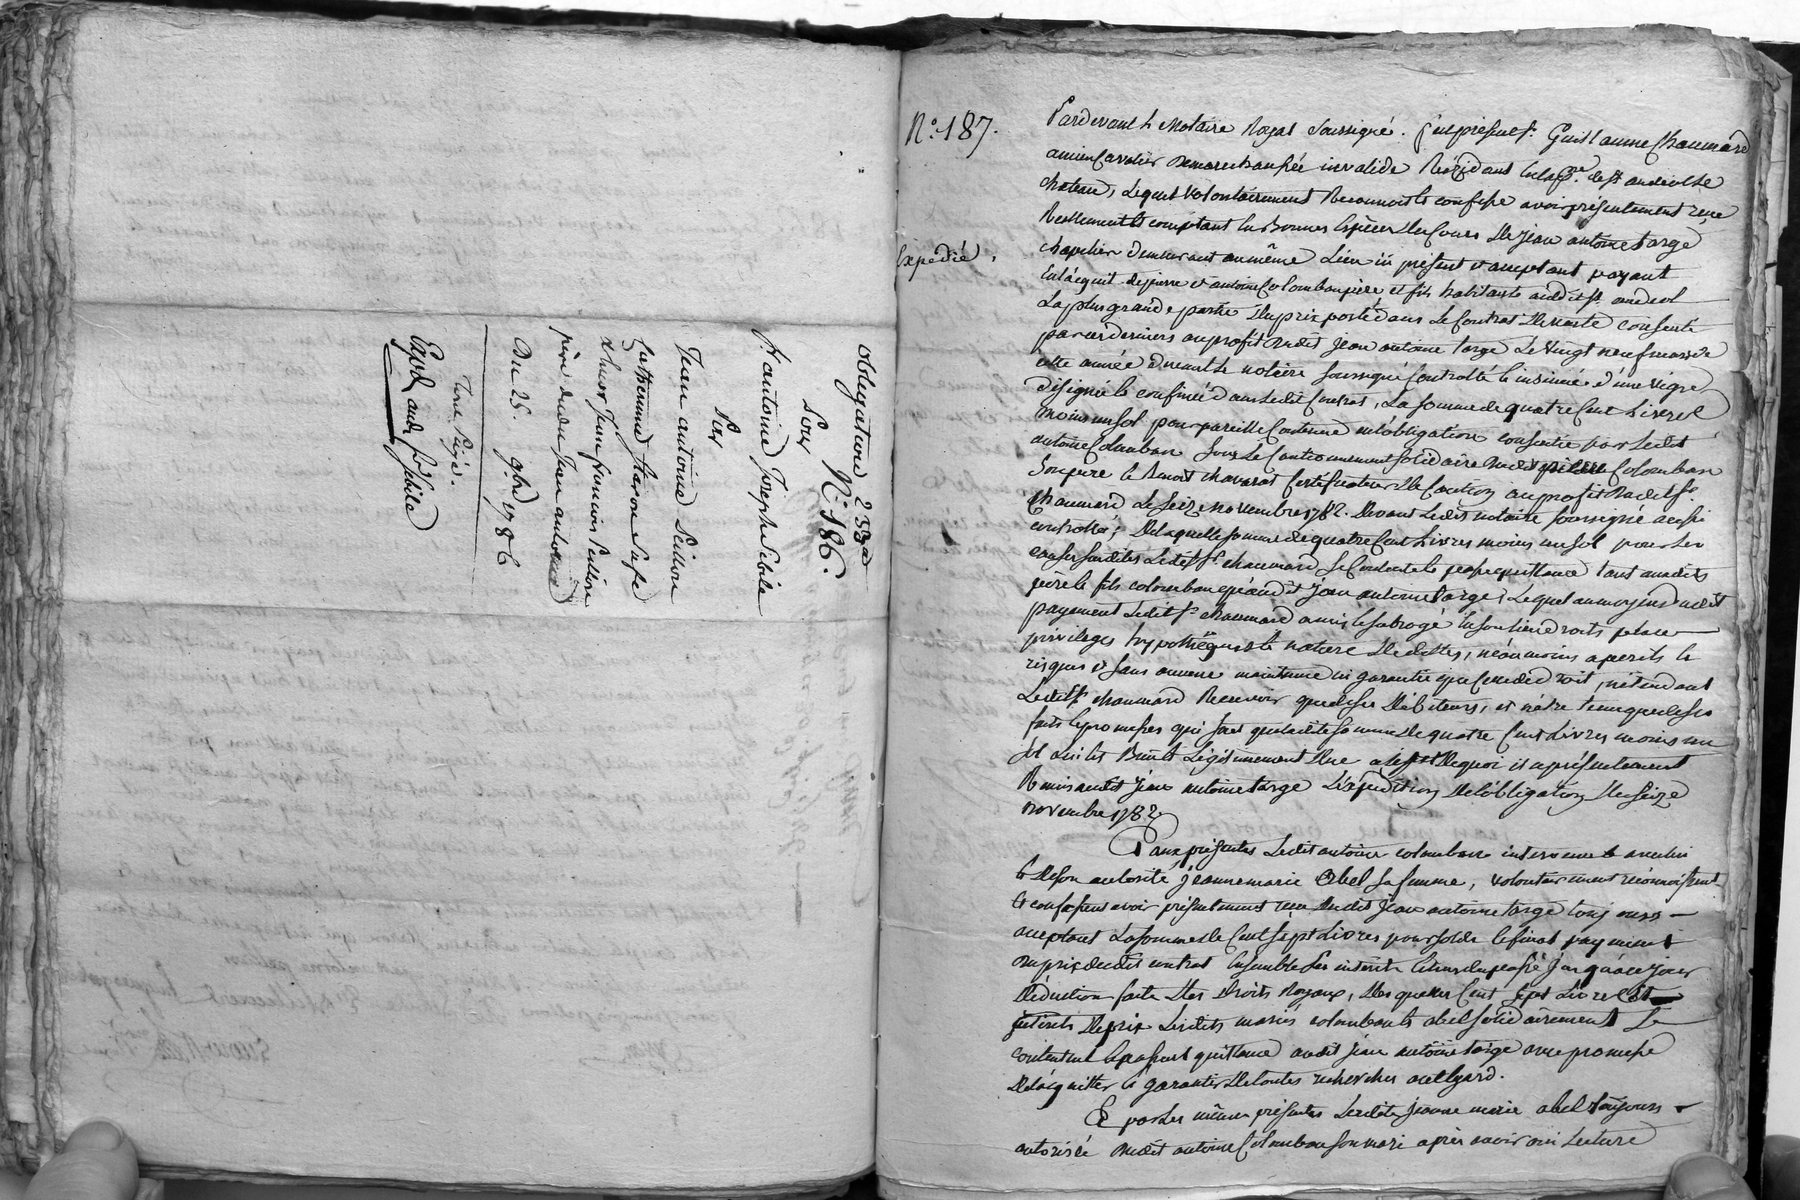 obligation 233##
N.° 186.
Pour
S.r antoine Joseph Sebile
Par
Jean antoine
&
père dudit Jean antoine
Du 25. 9bre 1786
Exp.é audt S.r Sebile
N.° 187.
Expedié.
Pardevant le Notaire Royal soussigné. fut présent S.r Guillaume Chaumard
ancien Cavalier de marechaussée invalide Résidant en la de st andeol le
chateau, Lequel volontairement Reconnoit & confesse avoir présentement reçu
Reellement & comptant en Bonnes Espèces du Cours De Jean antoine targe
chapelier demeurant au même Lieu ici présent & acceptant payant
En l'acquit de pierre & antoine Colomban père et fils habitants audit st andeol
La plus grande partie du prix porté dans Le Contrat De vente consenti
par ces derniers au profit dudit Jean antoine targe Le vingt neuf mars de
cette année devant Le notaire soussigné Controllé & insinué d'une vigne
désignée & confinée dans Ledit Contrat, La somme de quatre Cent Livres
moins un sol pour pareille Contenue en l'obligation consentie par Ledit
antoine Colomban sous Le Cautionnement solidaire dudit pierre Colomban
son pere & Benoit chavassat Certificateur De Caution au profit dudit S.r
Chaumard Le seize Novembre 1782. Devant Ledit notaire soussigné aussi
controllé; De laquelle somme de quatre Cent Livres moins un sol pour Les
Causes susdites Ledit S.r chaumard se Contente & passe quittance tant auxdits
père & fils colomban qu'audit Jean antoine targe, Lequel au moyen dudit
payement Ledit S.r chaumard a mis & subrogé En son Lieu droits place
privileges hypothèques & nature De dettes, néanmoins a perils &
risques & sans aucune maintenue ni garantie que Ce ne de droit, n'etendant
Ledit S.r chaumard Recevoir que desdits Débiteurs, et n'être tenu que de ses
faits & promesses qui sont que ladite somme De quatre Cent Livres moins un
sol Lui est Bien & Légitimement Due a l'effet De quoi il a présentement
Remis audit Jean antoine targe L'éxpédition De l'obligation Du seize
novembre 1782
Par ces présentes Ledit antoine colomban intervenant avec lui
& De son autorité Jeanne marie Abel sa femme, volontairement reconnoissent
& confessent avoir présentement reçu Dudit Jean antoine targe toujours
acceptant La somme De Cent sept Livres pour solde & final payement
du prix dudit contrat Ensemble Les interêts jusqu'a ce jour
Déduction faite Des Droits Royaux, Desquelles Cent sept Livres Et
interêts De prix Lesdits mariés colomban & abel solidairement Se
contentent & passent quittance audit Jean antoine targe avec promesse
De l'acquitter & garantir De toutes recherches a cet egard.
Et par Les mêmes présentes Ladite Jeanne marie abel toujours
autorisée dudit antoine Colomban son mari après avoir oui Lecture